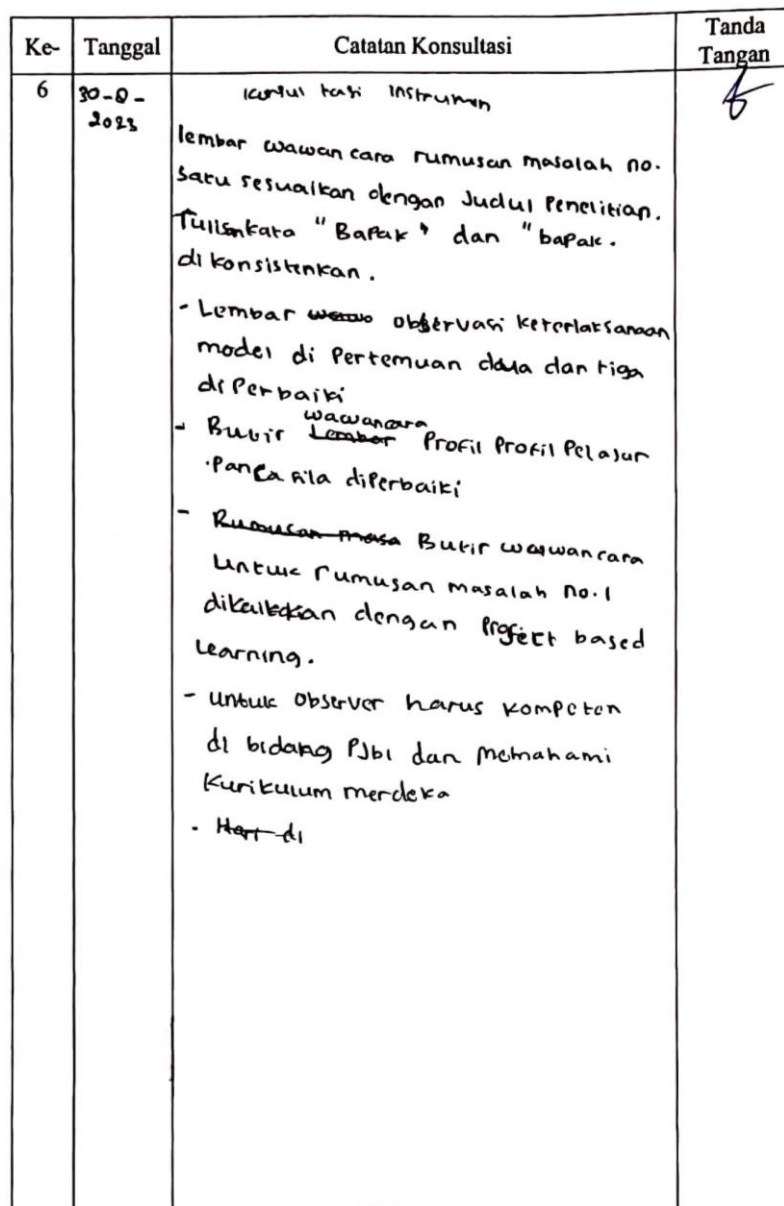 Ke- Tanggal Catatan Konsultasi Tanda Tangan
6 30-8-2023
Konsul tasi Instrumen
lembar wawancara rumusan masalah no.
satu sesuaikan dengan Judul Penelitian.
Tulisan kata "Bapak" dan "bapak.
di konsistenkan.
- Lembar observasi keterlaksanaan
model di Pertemuan dua dan tiga
diPerbaiki
- Butir wawancara Lembar Profil Profil Pelajar
Pancasila diPerbaiki
- Rumusan masa Butir wawancara
untuk rumusan masalah no.1
dikaitkan dengan Project based
Learning.
- untuk Observer harus kompeten
di bidang PJbl dan Memahami
Kurikulum merdeka
- Hari di